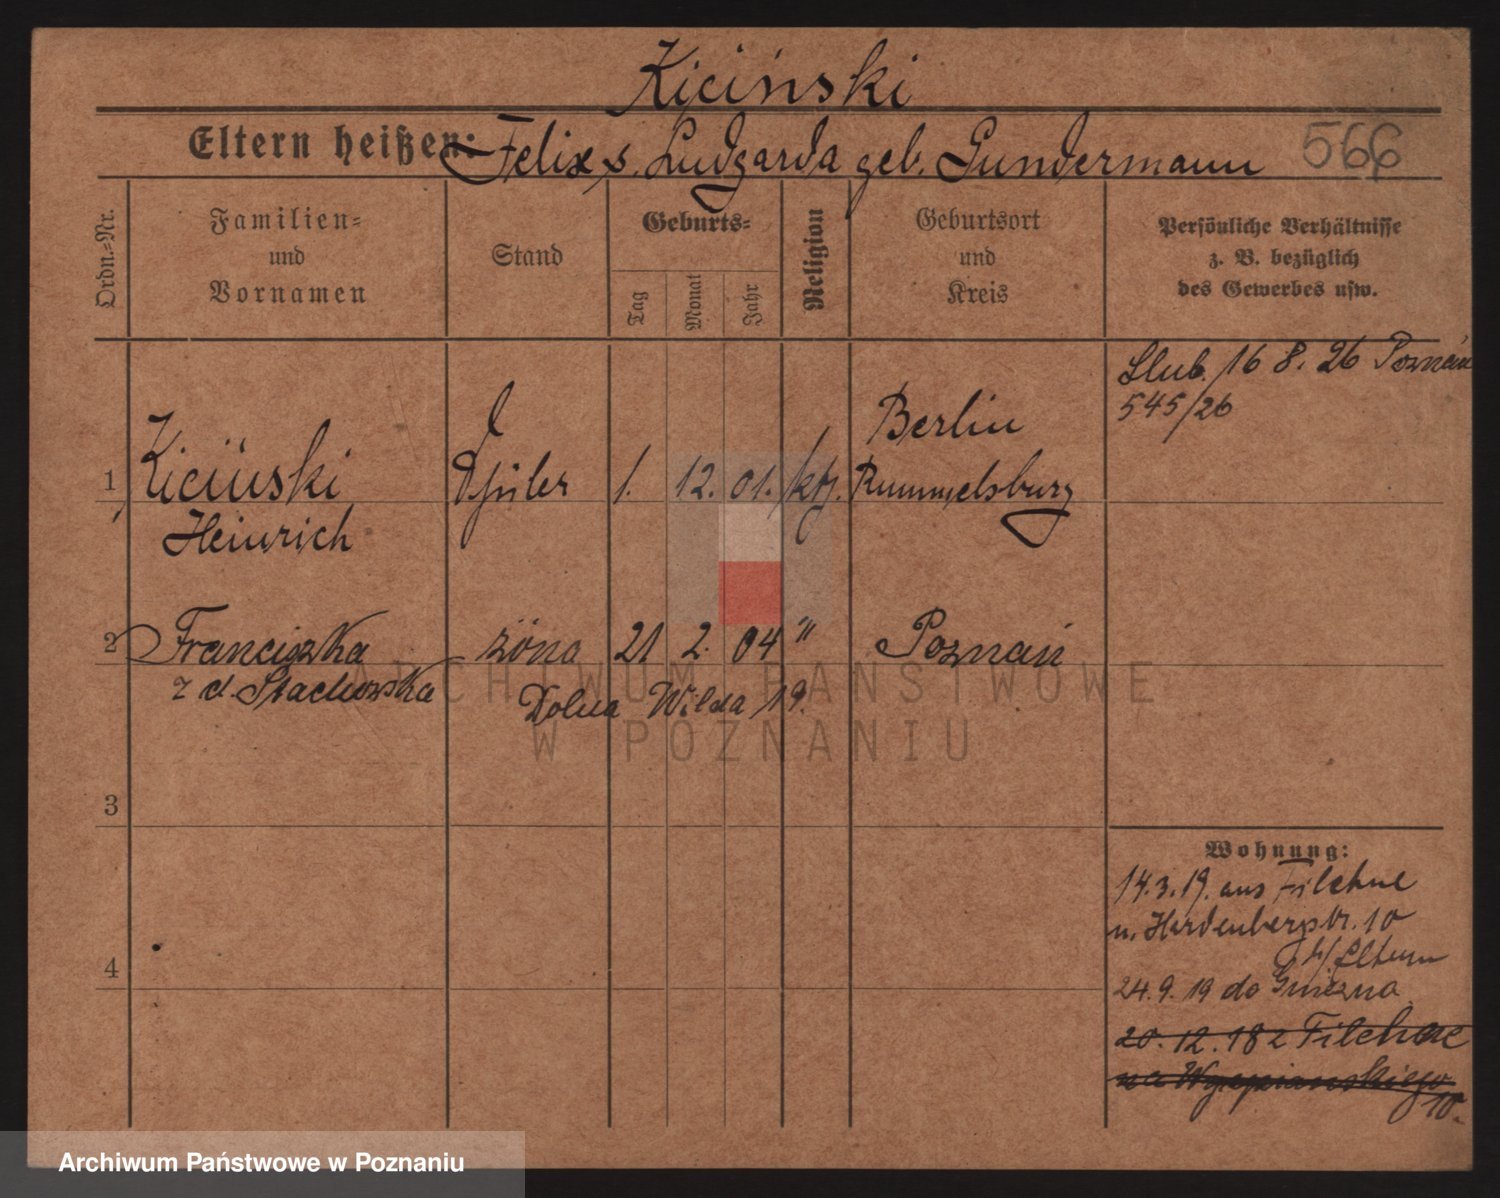 Kiciński
Eltern heißen: Felix s. Ludgarda geb. Gundermann 566
Ordn.-Nr.
Familien-
und
Vornamen
Stand
Geburts-
Tag
Monat
Jahr
Religion
Geburtsort
und
Kreis
Persönliche Verhältnisse
z. B. bezüglich
des Gewerbes usw.
Slub. 16 8. 26 Poznań
545/26
1 Kiciński 1. 12. 01. kth. Berlin
Rummelsburg
Heinrich
2 Franciszka żona 21 2. 04 " Poznań
z d. Stachowska Dolna Wilda 19.
3
4
Wohnung:
14.3.19. aus Filehne
n. Hardenbergstr. 10
b/ Eltern
24.9.19 do Gniezna
20.12.18 z Filehne
na Wyspiańskiego
10.
ARCHIWUM PAŃSTWOWE
W POZNANIU
Archiwum Państwowe w Poznaniu